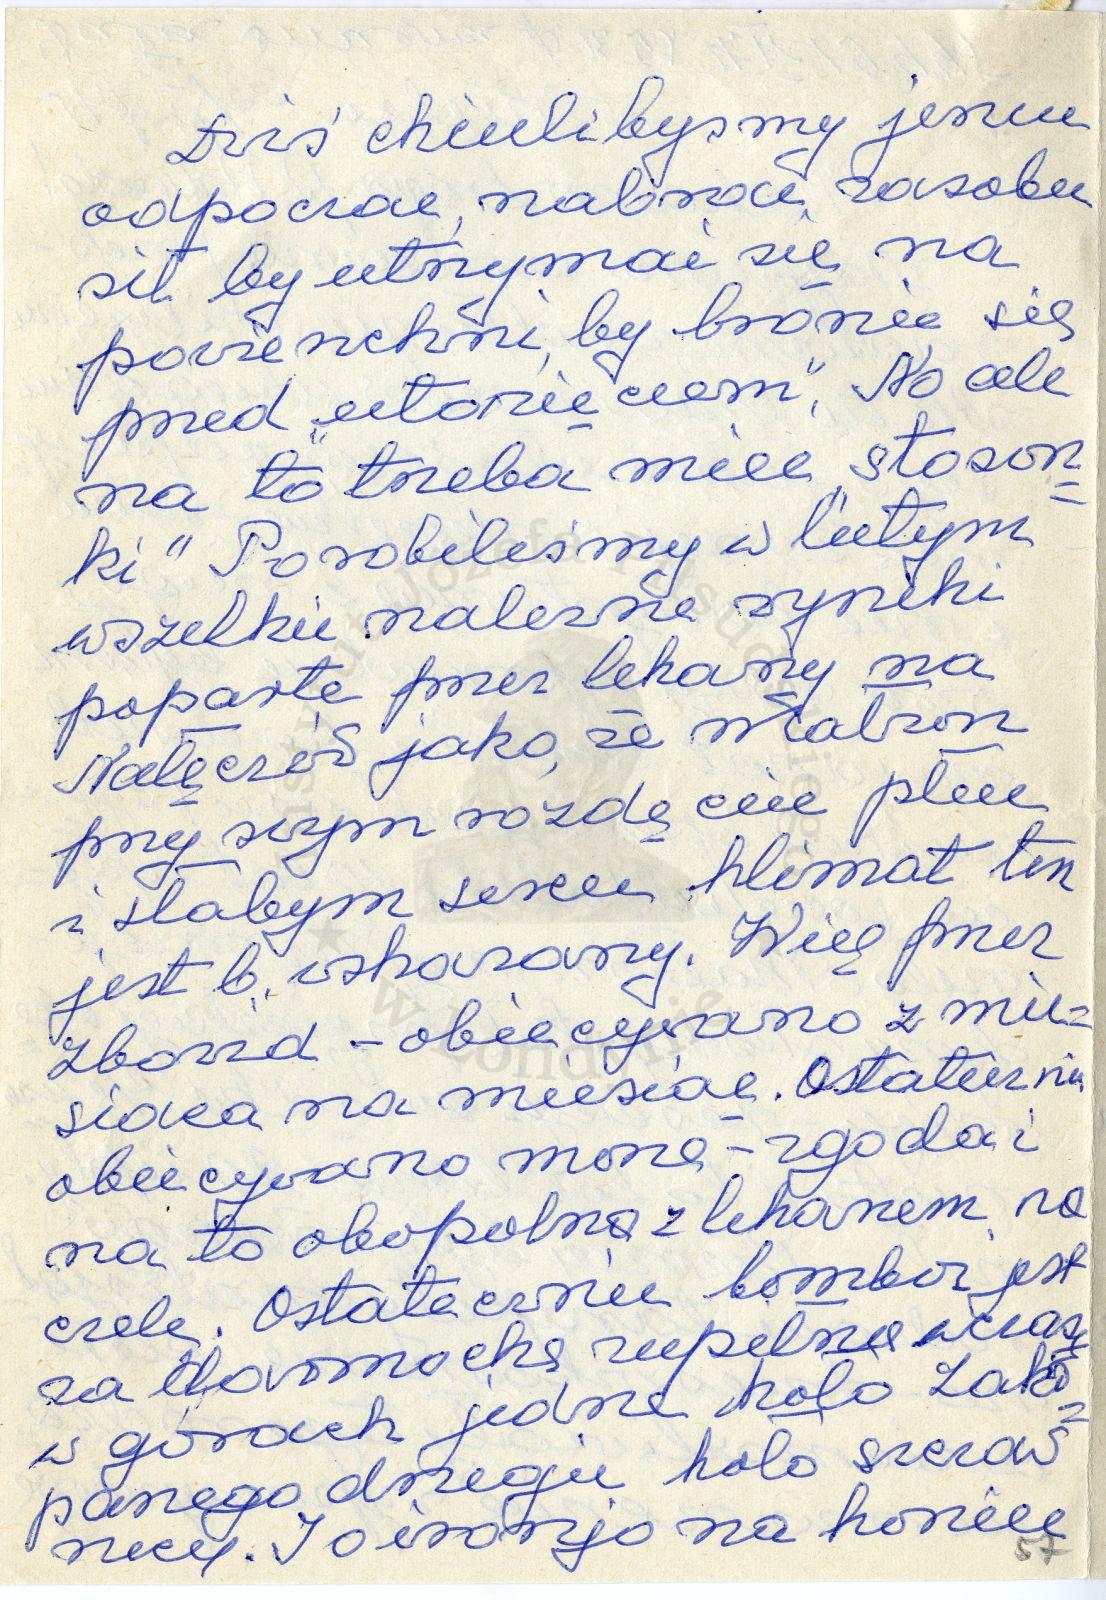 Dziś chcielibyśmy jeszcze
odpocząć, nabrać zasobu
sił by utrzymać się na
powierzchni, by bronić się
przed „utonięciem”. No ale
na to trzeba mieć „stosun=
ki” Porobiliśmy w lutym
wszelkie należne wyniki
poparte przez lekarzy na
Nałęczów jako, że małżon
przy swym rozdęciu płuc
i słabym sercu klimat ten
jest b. wskazany. Więc przez
Zbowid – obiecywano z mie=
siąca na miesiąc. Ostatecznie
obiecywano – zgoda i
na to obopólna z lekarzem na
czele. Ostatecznie bomba jest
za zupełne wczasy
w górach jedne koło Zako=
panego drugie koło Szczaw
nicy. I o ironjo na koniec
57
Instytut Józefa Piłsudskiego
w Londynie